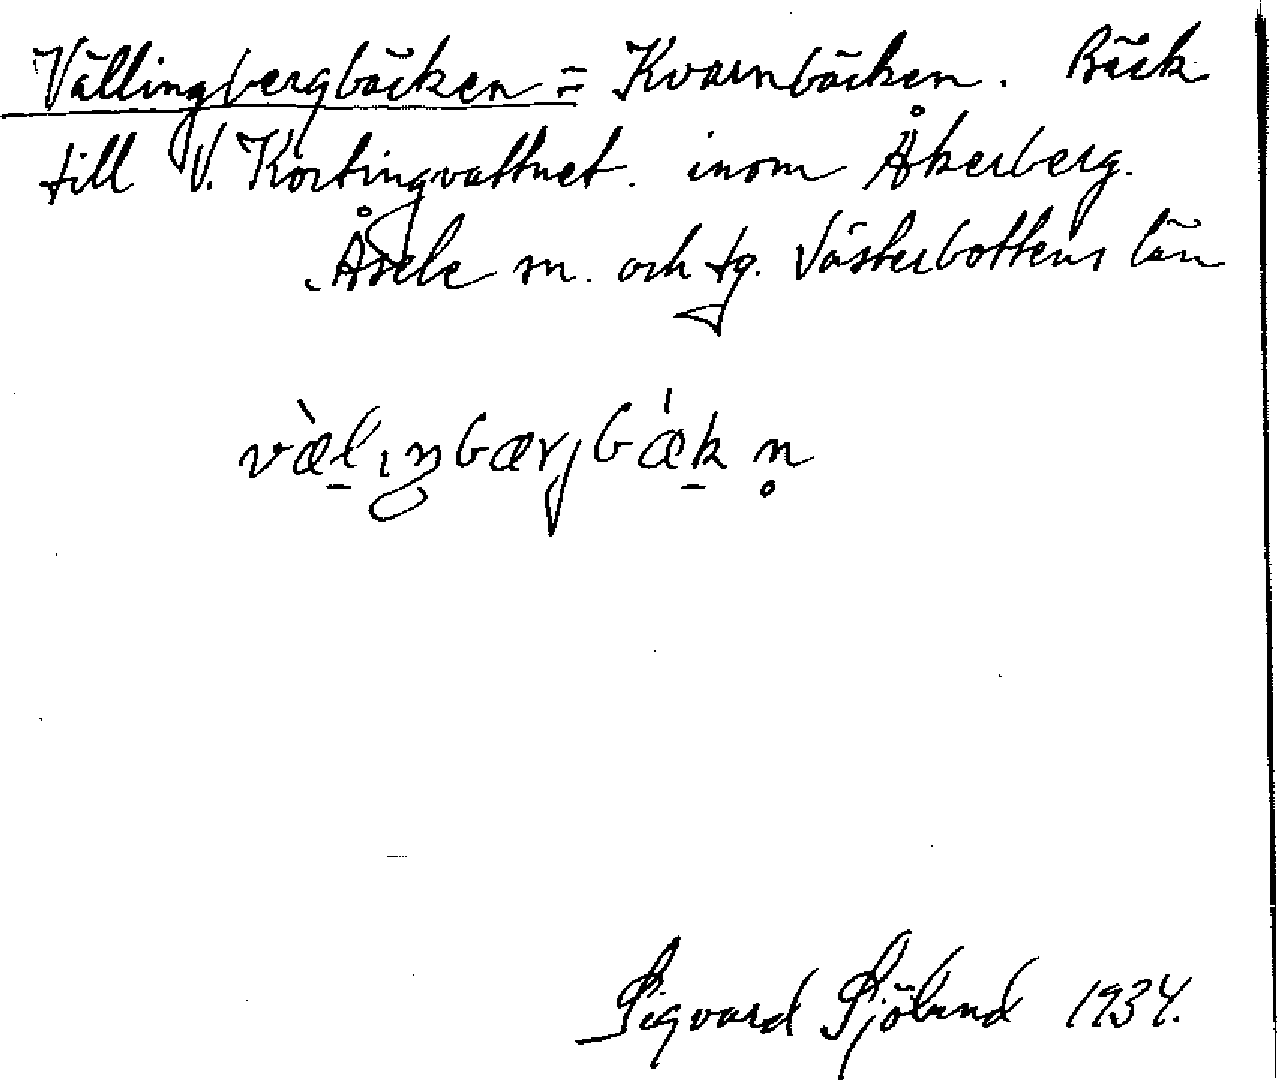 Vällingbergbäcken = Kvarnbäcken. Bäck
till V. Körtingvattnet. inom Åkerberg.
Åsele sn. och tg. Västerbottens län
væ̀l̠ıŋbærjbæ̍k̠ n̥
Sigvard Sjölund 1934.